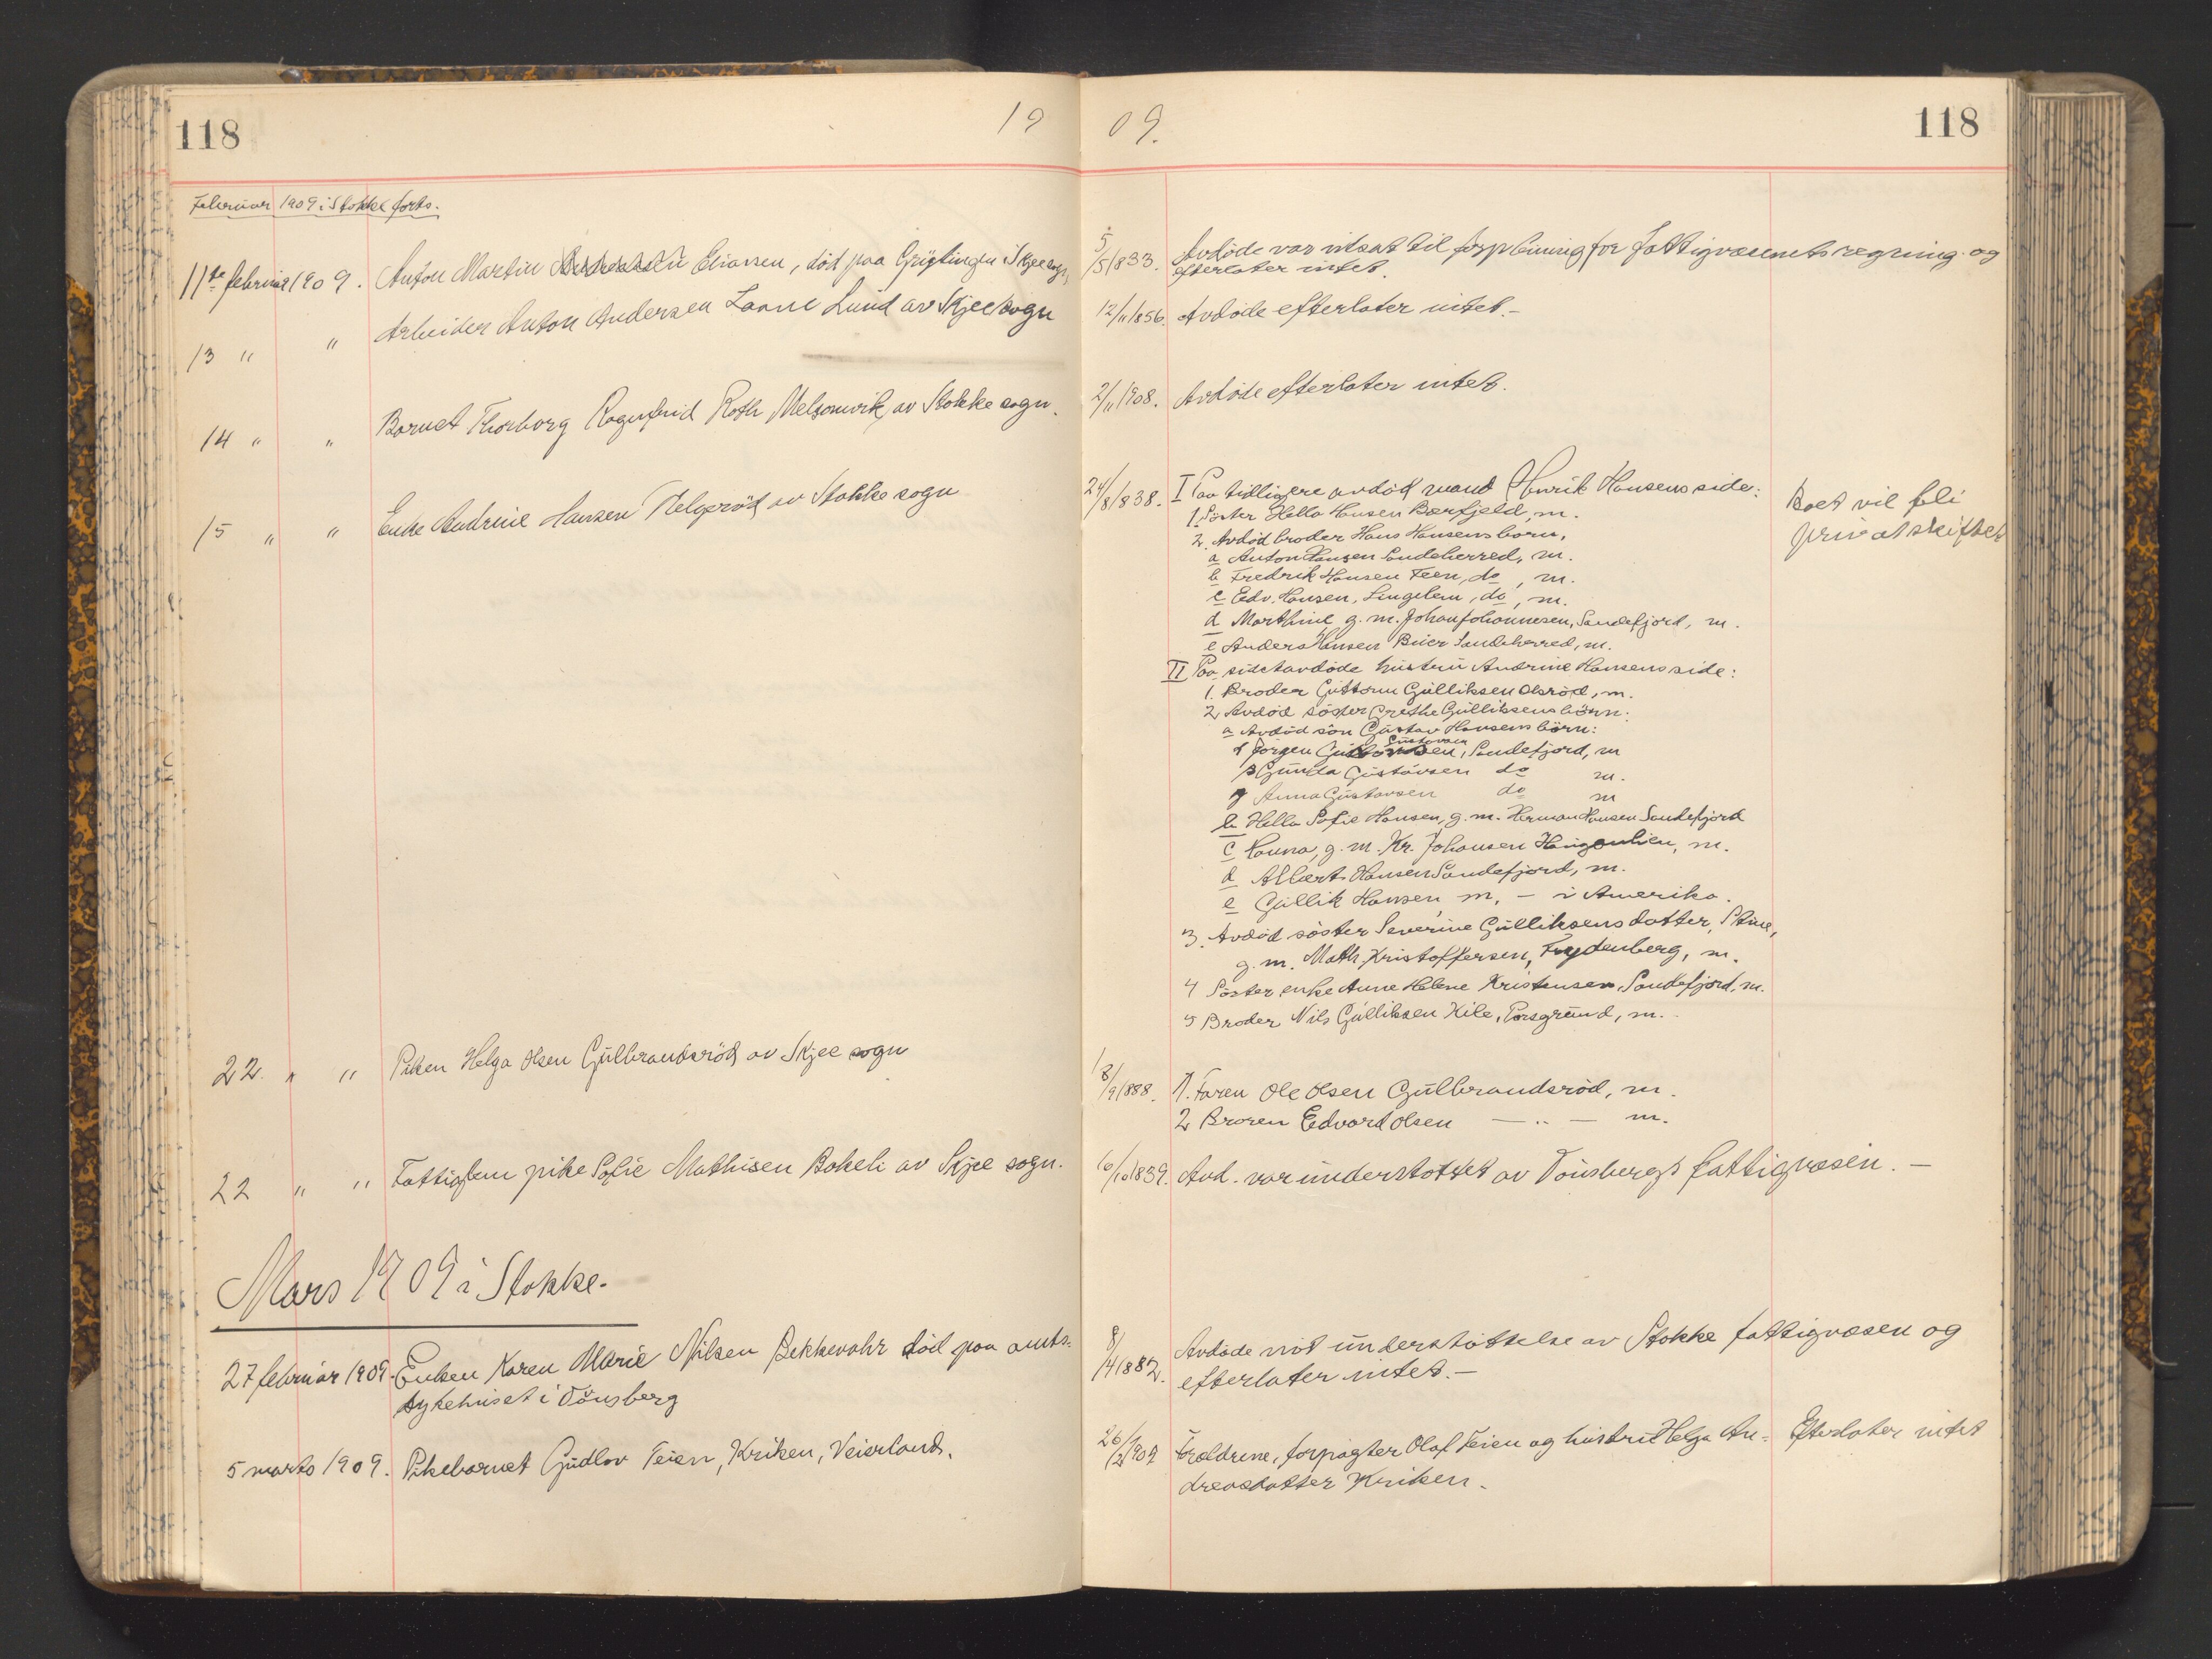 118
19
09.
118
Februar 1909 i Stokke forts.
11te februar 1909. Anton Martin Eliassen, död paa Grytingen i Skjee sogn,
5/5 1833. Avdöde var utsat til forpleining for fattigvæsenets regning og
efterlater intet.
13 " " Arbeider Anton Andersen Laane Lund av Skjee sogn
12/11 1856. Avdöde efterlater intet.-
14 " " Barnet Thorborg Ragnfrid Roth Melsomvik av Stokke sogn.
2/11 1908. Avdöde efterlater intet.
15 " " Enke Andrine Hansen Helgeröd av Stokke sogn
24/8 1838. I Paa tidligere avdöd mand Henrik Hansens side:
Boet vil bli
privat skiftet
1. Söster Hella Hansen Bærfjeld, m.
2. Avdöd broder Hans Hansens born,
a Anton Hansen Sandeherred, m.
b Fredrik Hansen Feen, do, m.
c Edv. Hansen, Lingelem, do, m.
d Marthine g. m. Johan Johannesen, Sandefjord, m.
e Anders Hansen Buer Sandeherred, m.
II Paa sidstavdöde hustru Andrine Hansens side:
1. Broder Guttorm Gulliksen Olsröd, m.
2 Avdöd söster Grethe Gulliksens börn:
a Avdöd sön Gustav Hansens börn:
α Jörgen Gustavsen, Sandefjord, m
β Gunda Gustavsen do m.
γ Anna Gustavsen do m
b Hella Sofie Hansen, g. m. Herman Hansen Sandefjord
c Hanna, g. m. Kr. Johansen Haugenlien, m.
d Albert Hansen Sandefjord, m.
e Gullik Hansen, m, - i Amerika.
3. Avdöd söster Severine Gulliksens datter, Stine,
g. m. Math. Kristoffersen, Frydenberg, m.
4 Söster, enke Anne Helene Kristensen, Sandefjord, m.
5 Broder Nils Gulliksen Kile, Porsgrund, m.
22. " " Piken Helga Olsen Gulbrandsröd av Skjee sogn
18/9 1888. 1. Faren Ole Olsen Gulbrandsröd, m.
2 Broren Edvard Olsen — " — m.
22 " " Fattiglem pike Sofie Mathisen Bokeli av Skjee sogn.
16/10 1839. Avd. var understöttet av Tönsbergs fattigvæsen. -
Mars 1909 i Stokke.
27 februar 1909. Enken Karen Marie Nilsen Bekkevahr död paa amts-
sykehuset i Tönsberg
8/14 1882. Avdöde nöt understöttelse av Stokke fattigvæsen og
efterlater intet.-
5 marts 1909. Pikebarnet Gudlov Teien, Kriken, Veierland.
26/2 1909 Foreldrene, forpagter Olaf Teien og hustru Helga An-
dreasdatter Kriken.
Efterlater intet